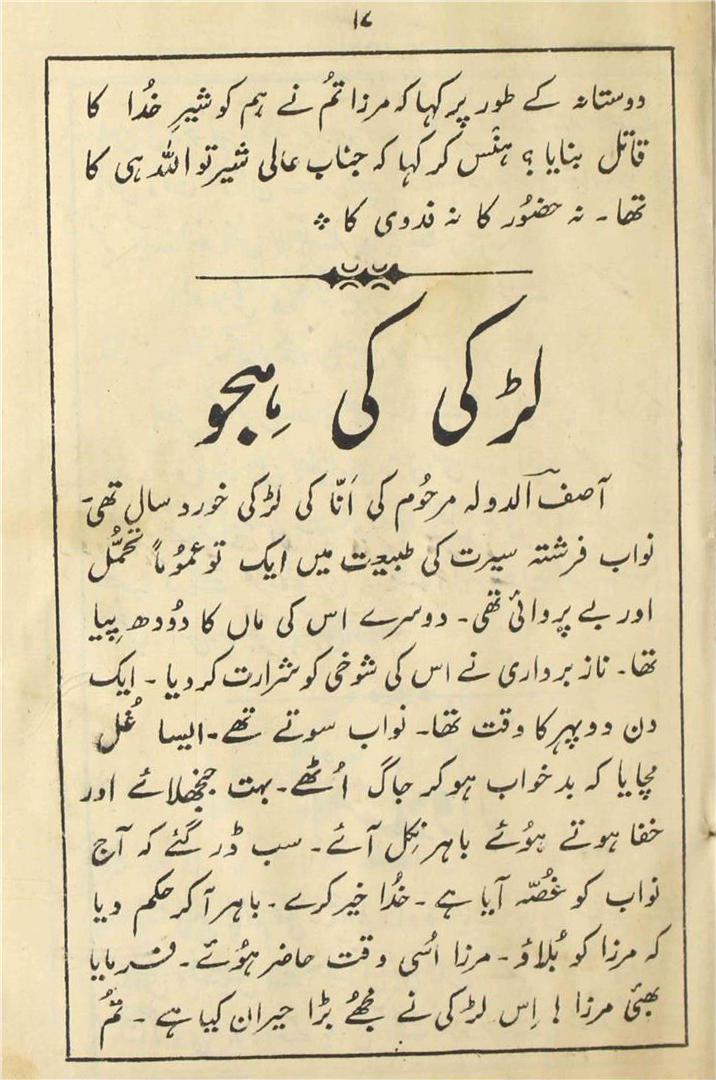 ۱۷
دوستانہ کے طور پر کہا کہ مرزا تمُ نے ہم کو شیرِ خُدا کا
قاتل بنایا؟ ہنْس کر کہا کہ جناب عالی شیر تو اللہ ہی کا
تھا۔ نہ حضُور کا نہ فدوی کا ؞
لڑکی کی ہِجو
آصف الدولہ مرحُوم کی اَنّا کی لڑکی خورد سال تھی۔
نواب فرشتہ سیرت کی طبیعت میں ایک تو عموُماً تحمُّل
اور بے پروائی تھی۔ دوسرے اس کی ماں کا دوُدھ پِیا
تھا۔ ناز برداری نے اس کی شوخی کو شرارت کر دیا۔ ایک
دن دوپہر کا وقت تھا۔ نواب سوتے تھے۔ ایسا غُل
مچایا کہ بد خواب ہو کر جاگ اُٹھے۔ بہت جھنجھلائے اور
خفا ہوتے ہوُئے باہر نِکل آئے۔ سب ڈر گئے کہ آج
نواب کو غُصّہ آیا ہے۔ خُدا خیر کرے۔ باہر آ کر حکم دیا
کہ مرزا کو بُلاؤ۔ مرزا اُسی وقت حاضر ہوُئے۔ فرمایا
بھئی مرزا! اِس لڑکی نے مُجھے بڑا حیران کیا ہے۔ تمُ